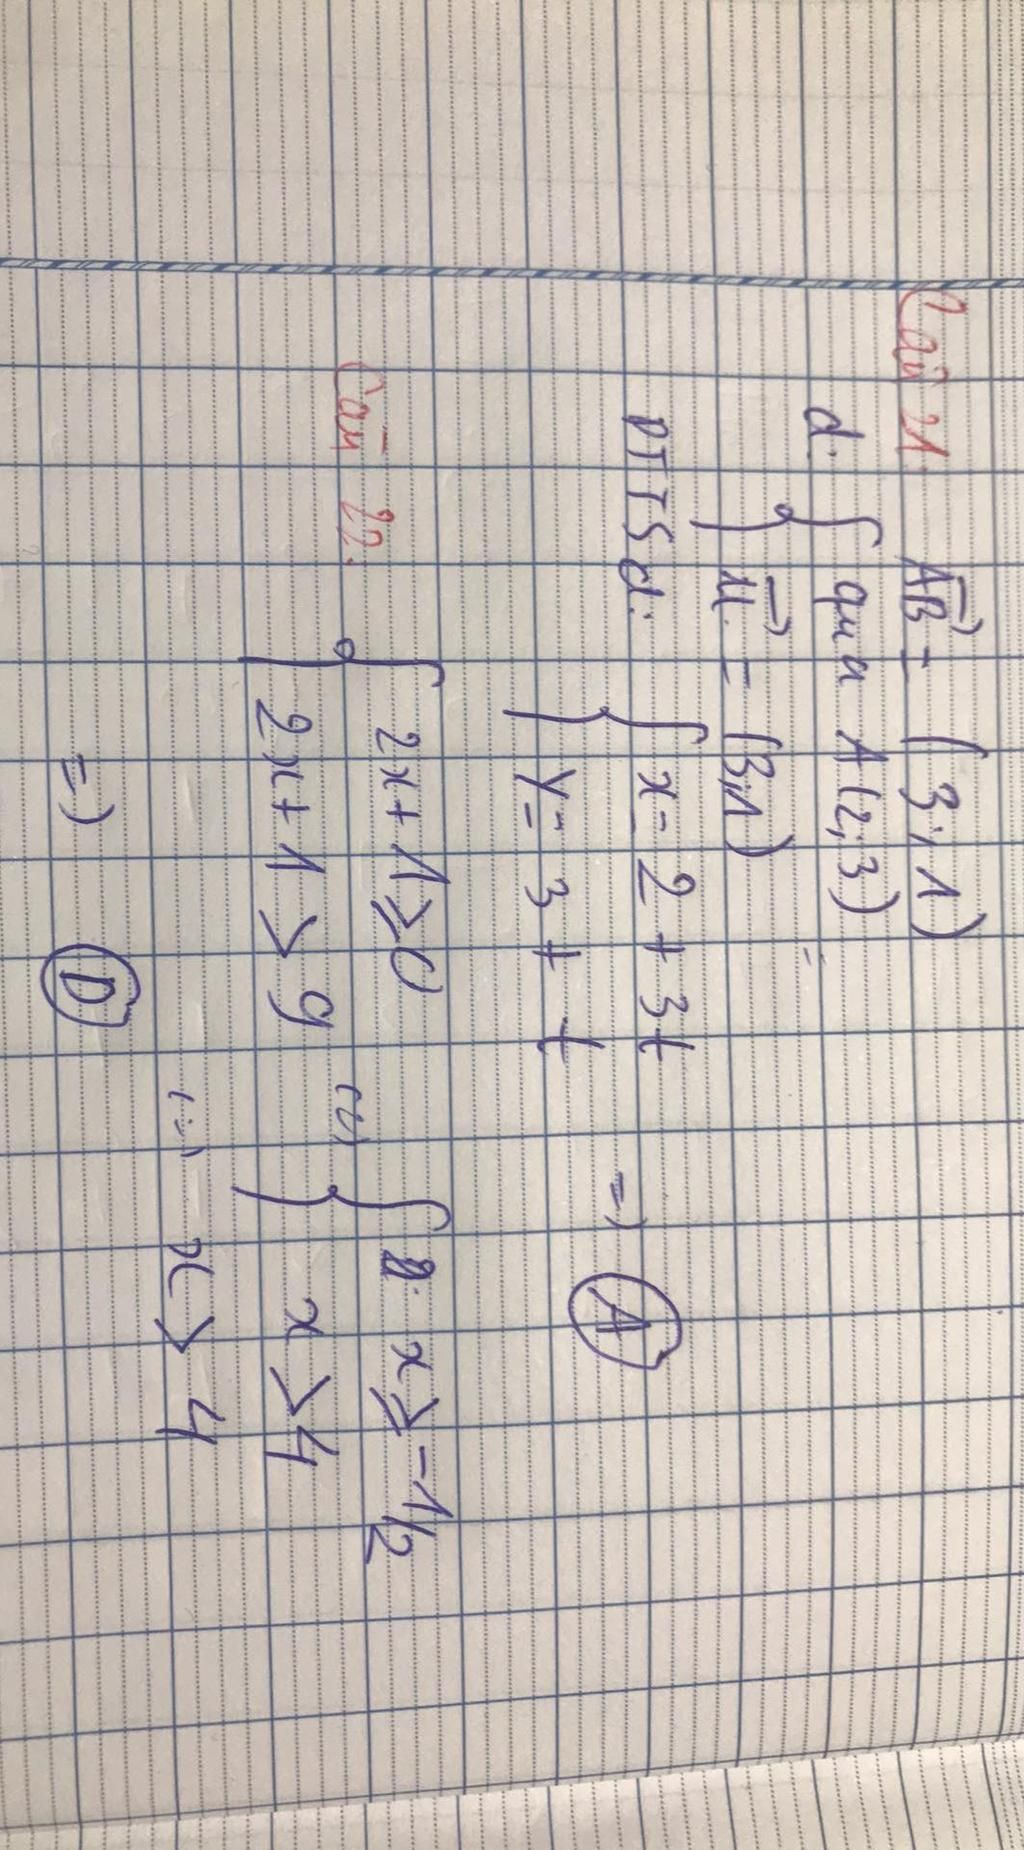 Câu 21. AB→ = (3;1)
d: { qua A(2;3)
u→ = (3;1)
PTTS d: { x = 2 + 3t
y = 3 + t => A
Câu 22: { 2x + 1 ≥ 0
2x + 1 > 9 (=) { x ≥ -1/2
x > 4
(=) x > 4
=) D